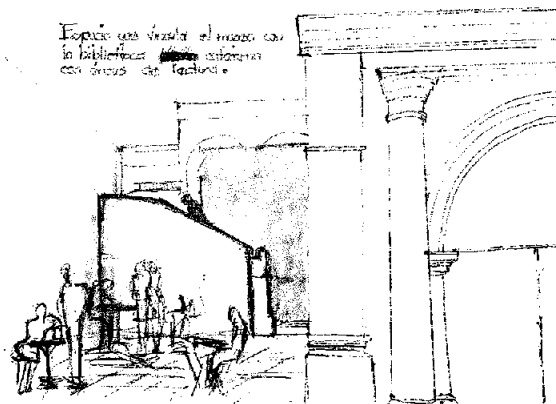 Espacio que vincula el museo con
la biblioteca exterior
con áreas de lectura.